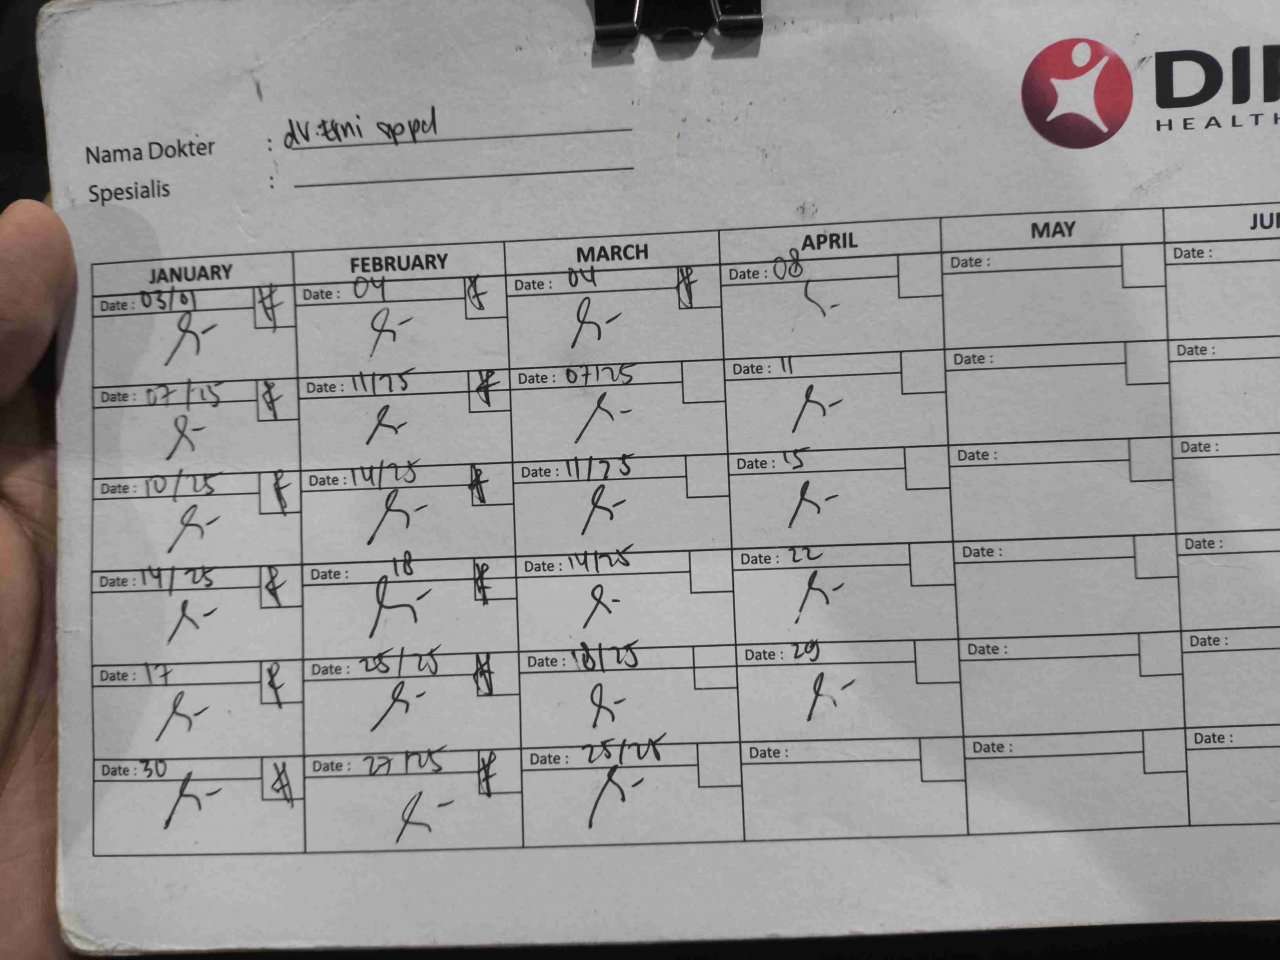 DI
HEALTH
Nama Dokter : dr. sppd
Spesialis :
JANUARY FEBRUARY MARCH APRIL MAY JU
Date : 03/01 Date : 04 Date : 04 Date : 08 Date : Date :
Date : 07/15 Date : 11/25 Date : 07/25 Date : 11 Date : Date :
Date : 10/25 Date : 14/25 Date : 11/25 Date : 15 Date : Date :
Date : 14/25 Date : 18 Date : 14/25 Date : 22 Date : Date :
Date : 17 Date : 25/25 Date : 18/25 Date : 29 Date : Date :
Date : 30 Date : 27/25 Date : 25/25 Date : Date : Date :